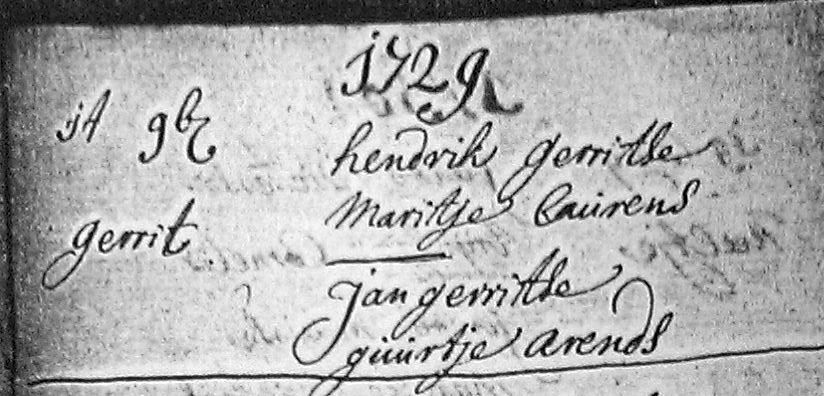 1729
14 9br
hendrik gerritse
Maritje Laurens
gerrit
jan gerritse
guurtje Arends